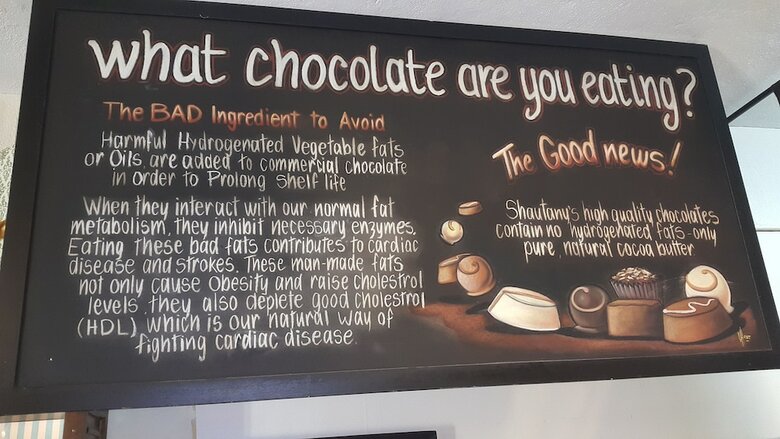 what chocolate are you eating?
The BAD Ingredient to Avoid
Harmful Hydrogenated Vegetable fats
or Oils, are added to commercial chocolate
in order to Prolong Shelf life
When they interact with our normal fat
metabolism, they inhibit necessary enzymes.
Eating these bad fats contributes to cardiac
disease and strokes. These man-made fats
not only cause obesity and raise cholestrol
levels, they also deplete good cholestrol
(HDL), which is our natural way of
fighting cardiac disease.
The Good news!
Shautany's high quality chocolates
contain no hydrogenated fats - only
pure, natural cocoa butter